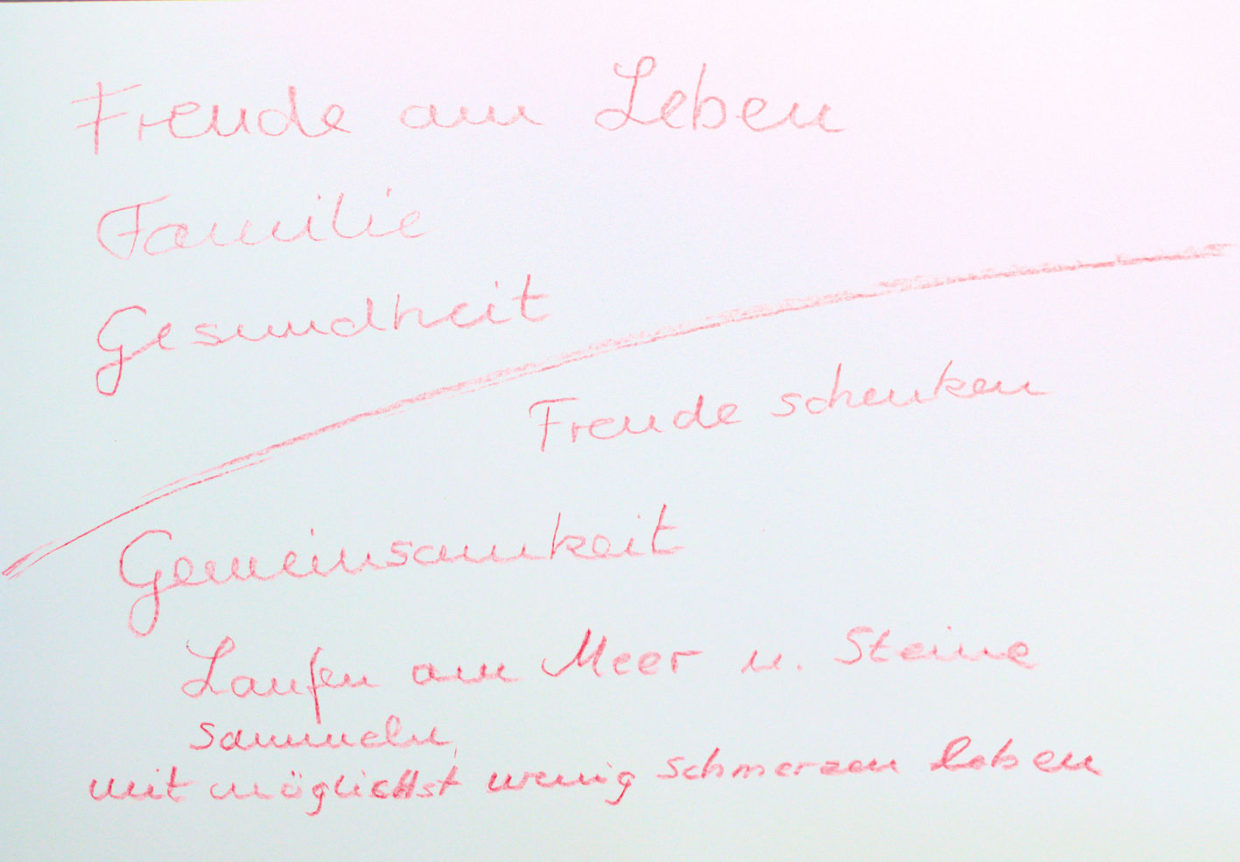 Freude am Leben
Familie
Gesundheit
Freude schenken
Gemeinsamkeit
Laufen am Meer u. Steine
sammeln,
mit möglichst wenig schmerzen leben